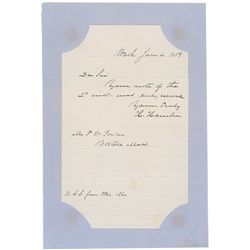 Wash Jan 4. 1859
Dr Sir
Your note of the
2d inst. was duly received
Yours truly
H. Hamlin
Mr
Boston Mass
U.S.S. from Me. 1860